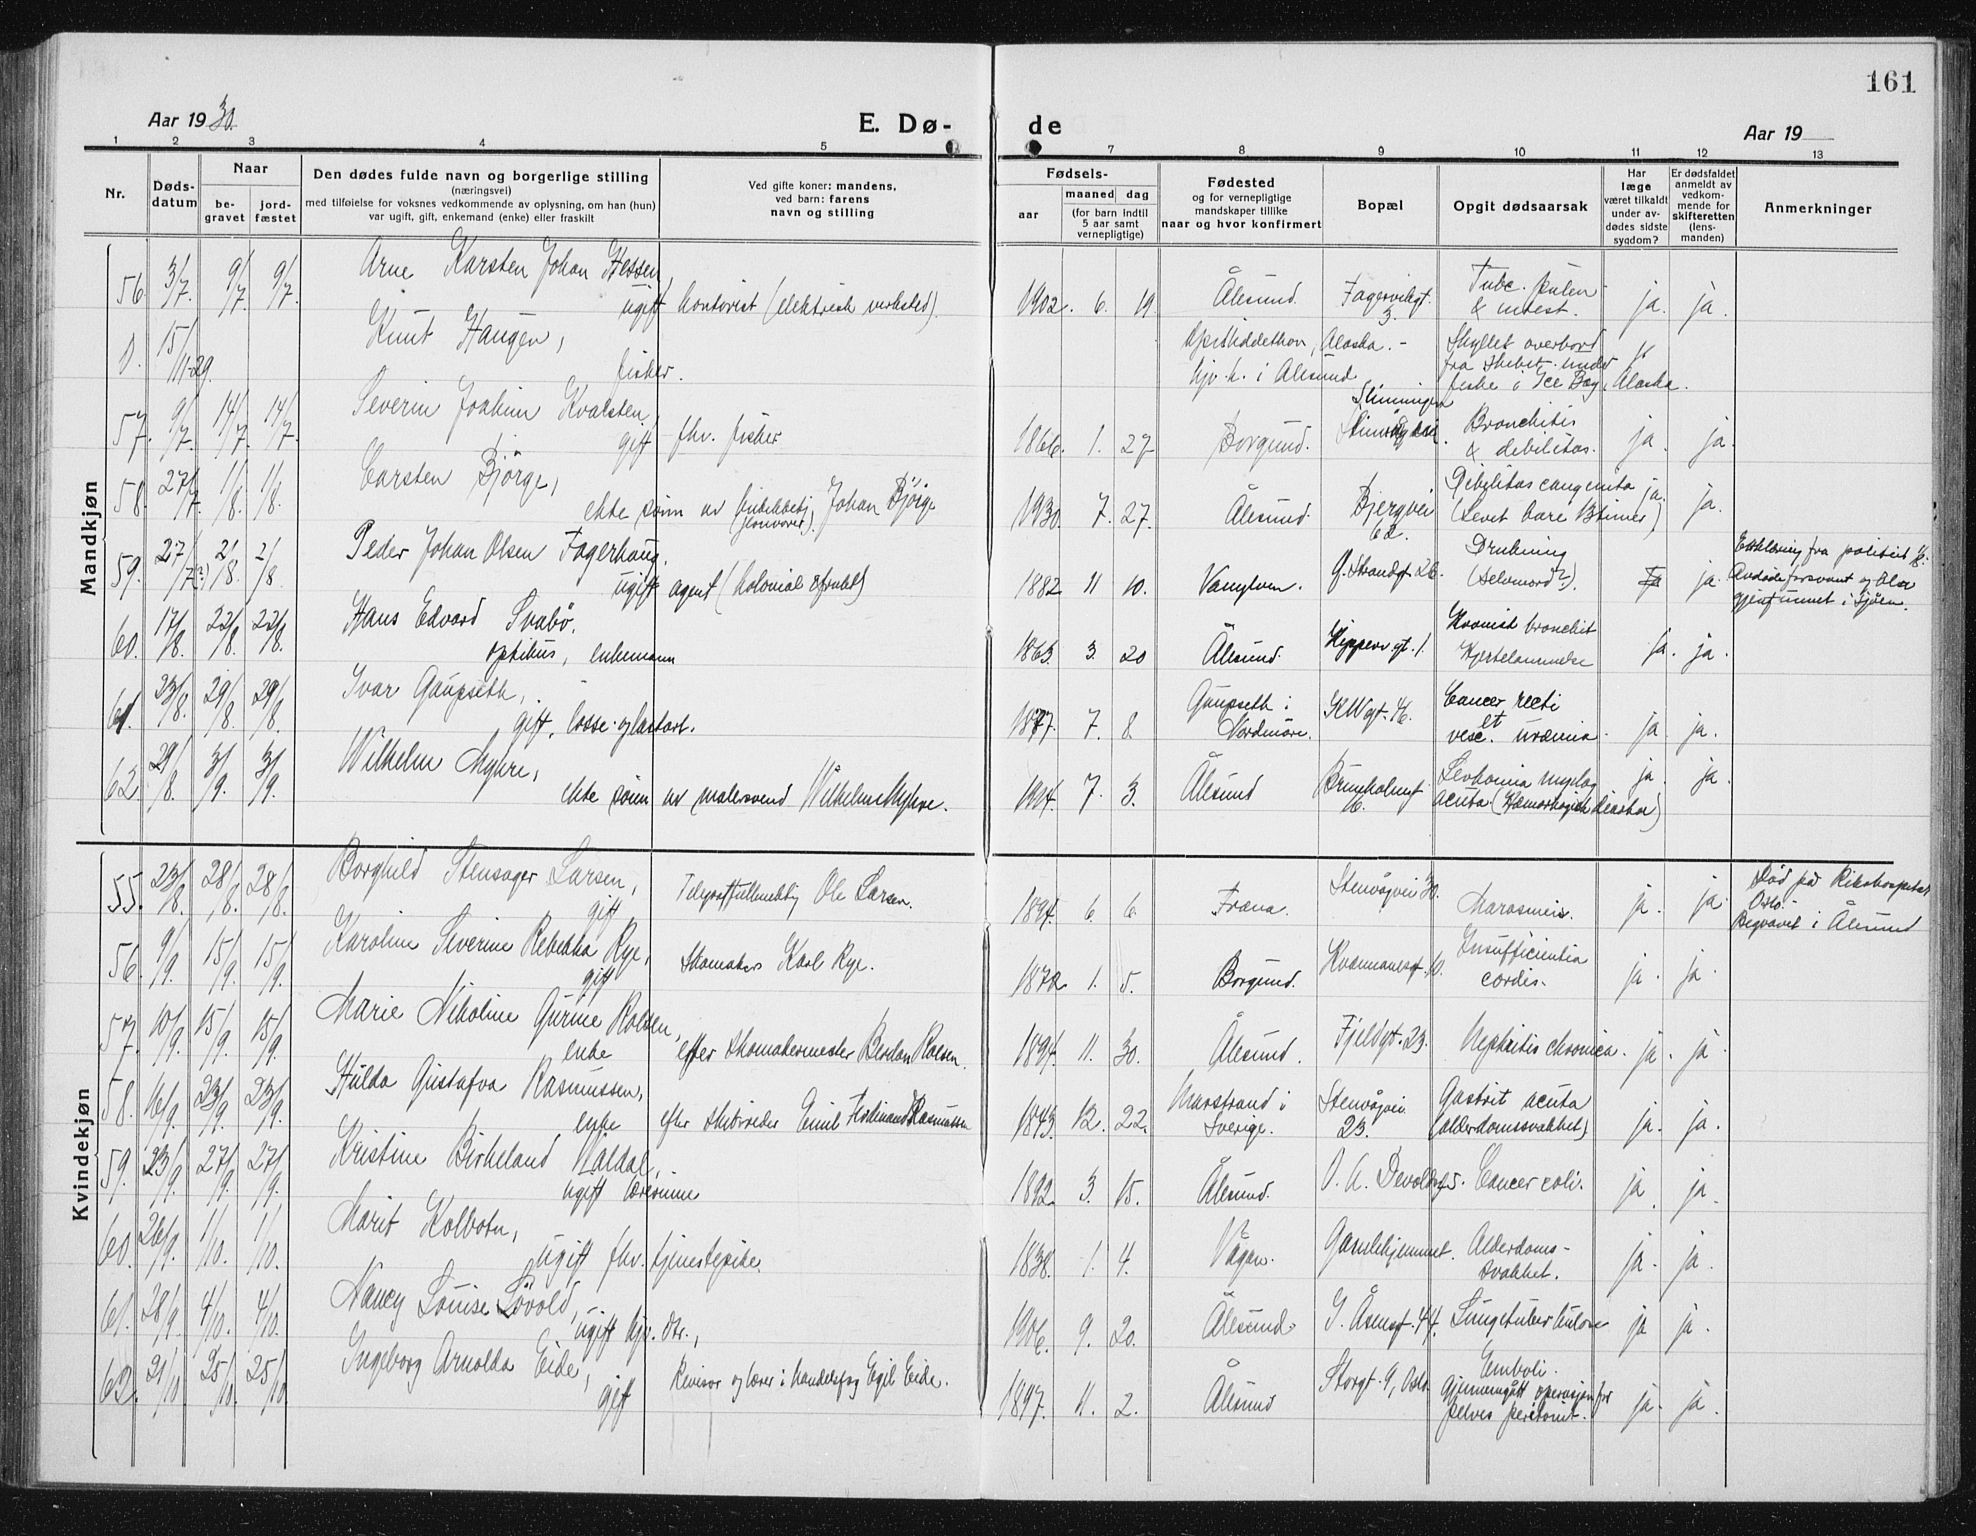 161
Aar 1930
E. Dø-
de
Aar 19
1 2 3 4 5 7 8 9 10 11 12 13
Nr.
Døds-
datum
Naar
be-
gravet
jord-
fæstet
Den dødes fulde navn og borgerlige stilling
(næringsvei)
med tilføielse for voksnes vedkommende av oplysning, om han (hun)
var ugift, gift, enkemand (enke) eller fraskilt
Ved gifte koner: mandens,
ved barn: farens
navn og stilling
Fødsels-
aar
maaned dag
(for barn indtil
5 aar samt
vernepligtige)
Fødested
og for vernepligtige
mandskaper tillike
naar og hvor konfirmert
Bopæl
Opgit dødsaarsak
Har
læge
været tilkaldt
under av-
dødes sidste
sygdom?
Er dødsfaldet
anmeldt av
vedkom-
mende for
skifteretten
(lens-
manden)
Anmerkninger
Mandkjøn
56. 3/7. 9/7. 9/7. Arne Karsten Johan Hessen,
ugift kontorist (elektrisk verksted).
1902. 6. 19 Ålesund. Fagervikgt. 3. Tubc. pulm. & intest. ja. ja.
0. 15/11-29. Knut Haugen,
fisker.
Alaska. - Skyllet overbord
hjv. h. i Ålesund fra skibet under
fiske i Ice Bay, Alaska.
57. 9/7. 14/7. 14/7. Severin Joakim Kvalsten,
gift fhv. fisker
1866. 1. 27 Borgund. Bronchitis
& debilitas. ja. ja.
58. 27/7. 1/8. 1/8. Carsten Bjørge,
ekte sønn av Johan Bjørge
1930. 7. 27. Ålesund. Bjergvei 62. Debilitas congenita
(Levet bare 13 timer) ja. ja.
59. 27/7(?) 2/8. 2/8. Peder Johan Olsen Fagerhaug,
ugift agent (kolonial & frukt)
1882 11 10. Vanylven. Ø. Strandgt. 26. Drukning
(selvmord?). ja. Erklæring fra politiet
Avdøde forsvant og blev
gjenfunnet i sjøen.
60. 17/8. 22/8. 22/8. Hans Edvard Svabø,
optikus, enkemann
1863. 3. 20 Ålesund. Kippervgt. 1. Kronisk bronchit
Hjertelammelse ja. ja.
61. 23/8. 29/8. 29/8. Ivar Gaupseth,
gift, losse- og lastearb.
1877. 7. 8. Gaupseth i
Nordmøre. Cancer recti
et vesic. uræmia. ja. ja.
62. 29/8. 3/9. 3/9. Wilhelm Myhre,
ekte sønn av malersvend Wilhelm Myhre.
1914. 7. 3. Ålesund Brunholmgt. 16. acuta ja. ja.
Kvindekjøn
55. 23/8. 28/8. 28/8. Borghild Stensager Larsen,
gift Ole Larsen.
1894. 6 6. Fræna. Stenvågvei 30. Marasmus. ja. ja. Død på Rikshospitalet
Oslo.
Begravet i Ålesund
56. 9/9. 15/9. 15/9. Karoline Severine Rebekka Rye,
gift Skomaker Karl Rye.
1870. 1. 5. Borgund. Insufficientia
cordis. ja. ja
57. 10/9. 15/9. 15/9. Marie Nikoline Gurine Rolsen,
enke efter skomakermester Rolsen.
11. 30. Ålesund. Fjeldgt. 23. Nephritis chronica. ja. ja.
58. 16/9. 23/9. 23/9. Hulda Gustafva Rasmussen,
enke efter skibsreder Emil Ferdinand Rasmussen
1843. 12. 22. Marstrand i
Sverige. Stenvågvei
23. Gastrit acuta
(alderdomssvakhet) ja. ja.
59. 23/9. 27/9. 27/9. Kristine Birkeland Valdal,
ugift lærerinne
1892 3. 15. Ålesund. O. A. Devoldsgt. 5. Cancer coli. ja. ja.
60. 26/9. 1/10. 1/10. Marit Kolbotn,
ugift fhv. tjenestepike.
1838. 1. 4. Vågan. Gamlehjemmet. Alderdoms-
svakhet. ja. ja.
61. 28/9. 4/10. 4/10. Nancy Louise Løvold,
ugift hjv. dtr.,
1906. 9. 20. Ålesund. I. Åsensgt. 44. Lungetuberkulose ja ja.
62. 21/10 25/10. 25/10 Ingeborg Arnolda Eide,
gift Revisor og lærer i handelsfag Egil Eide.
1897. 11. 2. Ålesund Storgt. 9, Oslo. Emboli.
Gjennemgått operasjon for
pelveo peritonit. ja. ja.